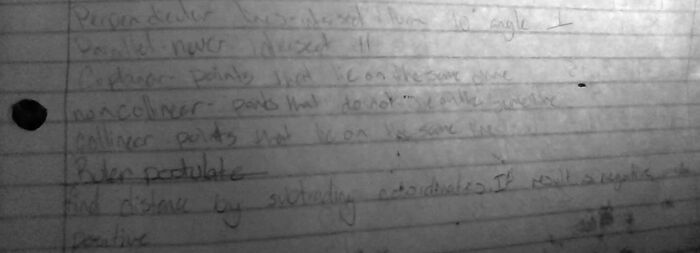 Perpendicular lines-intersect form 90° angle ⊥
Parallel-never intersect ||
Coplanar- points that lie on the same plane
noncollinear- points that do not lie on the same line
collinear points that lie on the same line
Ruler postulate
find distance by subtracting coordinates. If result is negative
positive